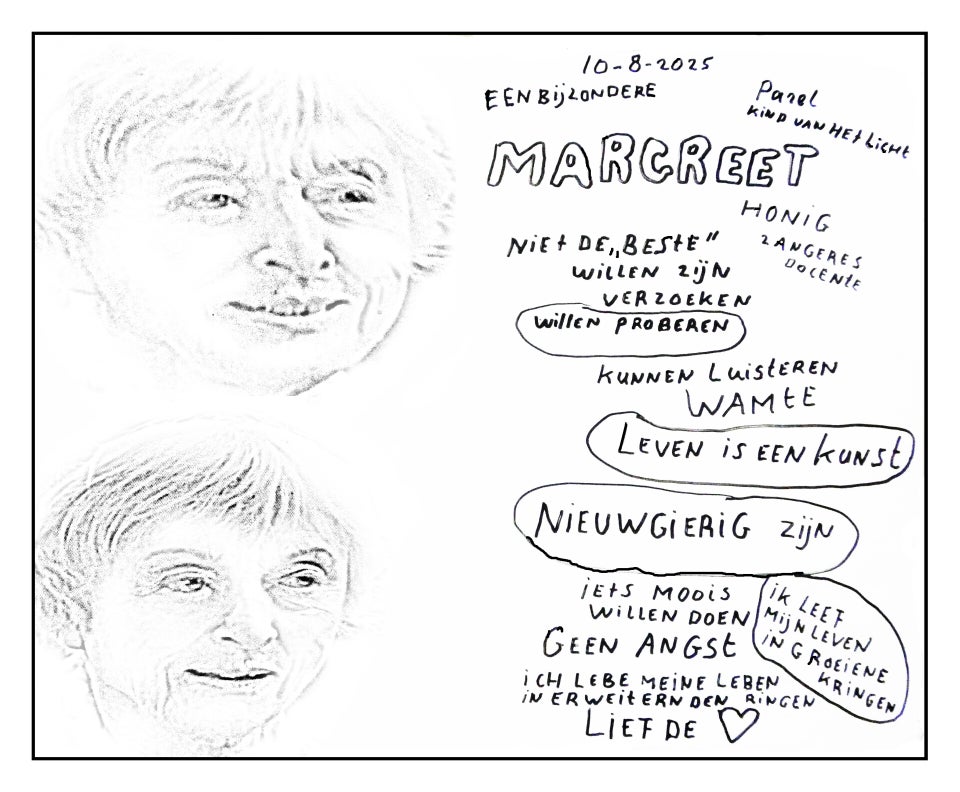 10-8-2025
EEN BIJZONDERE
Parel
KIND VAN HET LICHT
MARGREET
HONIG
ZANGERES
DOCENTE
NIET DE „BESTE”
WILLEN ZIJN
VERZOEKEN
WILLEN PROBEREN
KUNNEN LUISTEREN
WAMTE
LEVEN IS EEN KUNST
NIEUWGIERIG ZIJN
IETS MOOIS
WILLEN DOEN
GEEN ANGST
IK LEEF
MIJN LEVEN
IN GROEIENE
KRINGEN
ICH LEBE MEINE LEBEN
IN ERWEITERNDEN RINGEN
LIEFDE